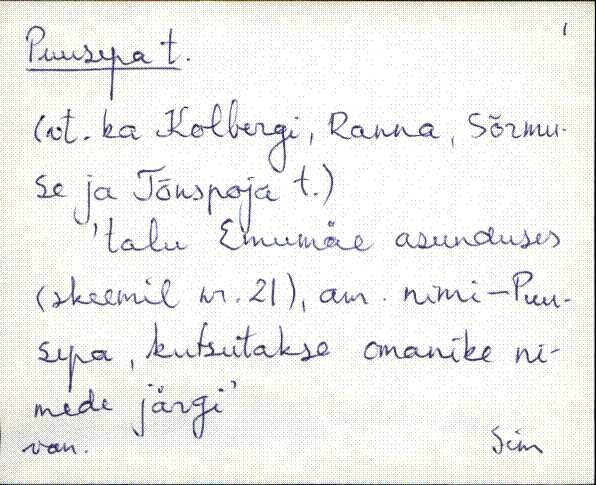 Puusepa t.
(vt. ka Kolbergi, Ranna, Sõrmu-
se ja Tõnspoja t.)
'talu Emumäe asunduses
(skeemil nr. 21), am. nimi-Puu-
sepa, kutsutakse omanike ni-
mede järgi'
van. Sim